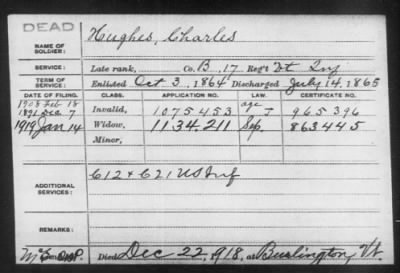 DEAD
NAME OF SOLDIER: Hughes, Charles
SERVICE: Late rank, Co. B, 17 Reg't Vt Inf
TERM OF SERVICE: Enlisted Oct 3, 1864 Discharged July 14, 1865
DATE OF FILING. CLASS. APPLICATION NO. LAW. CERTIFICATE NO.
1908 Feb 18 age
1891 Dec. 7 Invalid, 1075453 J 965396
1919 Jan 14 Widow, 1134211 Sep. 863445
Minor,
ADDITIONAL SERVICES: 612 + 621 US Inf
REMARKS:
Died Dec 22, 1918, at Burlington, Vt.